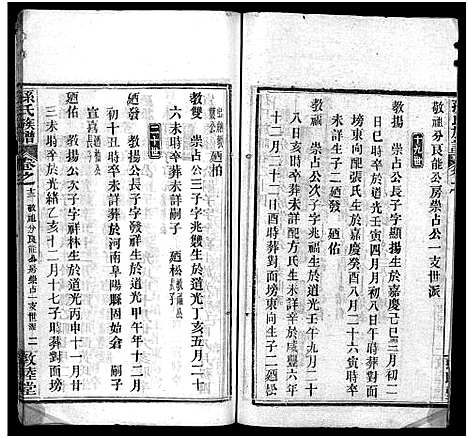 敬祖分良能公房崇占公一支世派
十九世
教揚 崇占公長子字顯揚生於嘉慶己巳三月初一
日巳時卒於道光壬寅四月初八日午時葬對面
塝東向配張氏生於嘉慶癸酉八月二十六寅時卒
未詳生子二廼發 廼佑
教福 崇占公次子字兆福生於道光壬午九月二十
八日亥時卒葬未詳配方氏生未詳卒於咸豐六年
十二月二十二日酉時葬對面塝東向生子二廼松
廼柏
教雙 崇占公三子字兆雙生於道光丁亥五月二十
六未時卒葬未詳嗣子廼松
二十世
廼發 教揚公長子字發祥生於道光甲午年十二月
初十丑時卒葬於河南阜陽縣固始會 嗣子
廼佑 教揚公次子字祥林生於道光丙申十一月初
三未時卒於光緒乙亥十二月十七子時葬對面塝
孫氏族譜
卷之一
敬祖分良能公房崇占一支世派 二
敦睦堂